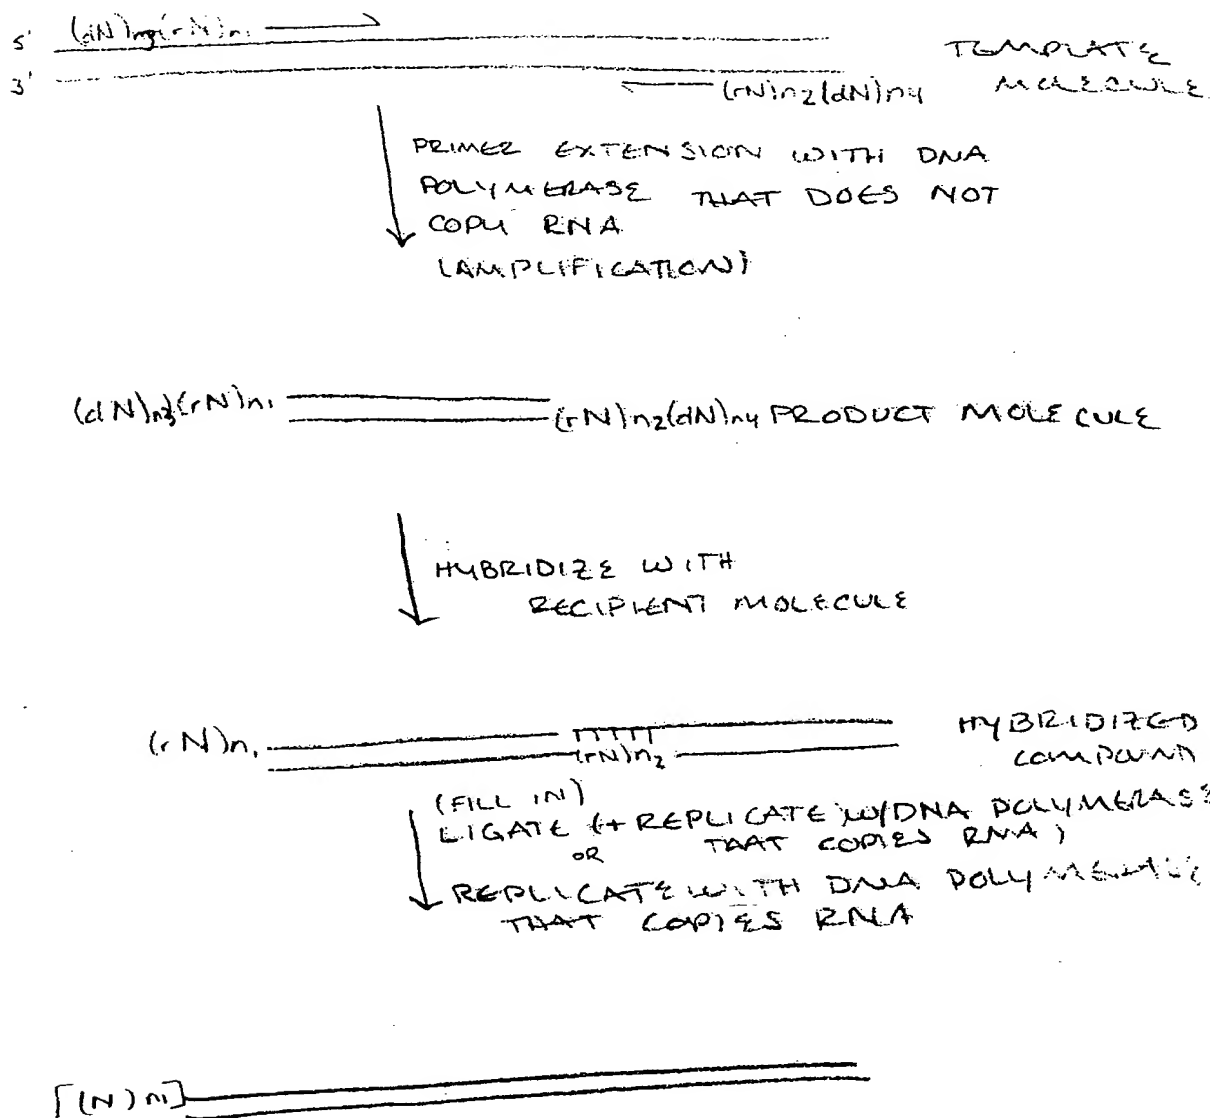 5' (dN)n3(rN)n1
TEMPLATE
3'
(rN)n2(dN)n4 MOLECULE
PRIMER EXTENSION WITH DNA
POLYMERASE THAT DOES NOT
COPY RNA
(AMPLIFICATION)
(dN)n3(rN)n1 (rN)n2(dN)n4 PRODUCT MOLECULE
HYBRIDIZE WITH
RECIPIENT MOLECULE
(rN)n1 HYBRIDIZED
(rN)n2 COMPOUND
(FILL IN)
LIGATE (+ REPLICATE W/DNA POLYMERASE
OR THAT COPIES RNA)
REPLICATE WITH DNA POLYMERASE
THAT COPIES RNA
[(N)n1]